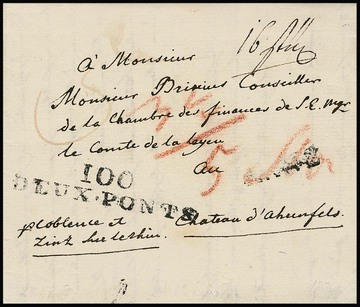 À Monsieur
Monsieur Brixius Conseiller
de la Chambre des finances de S. E. Mgr
le Comte de la Leyen
au
100
DEUX-PONTS
Chateau d'Ahrenfels.
p Coblence et
Linz sur le rhin.